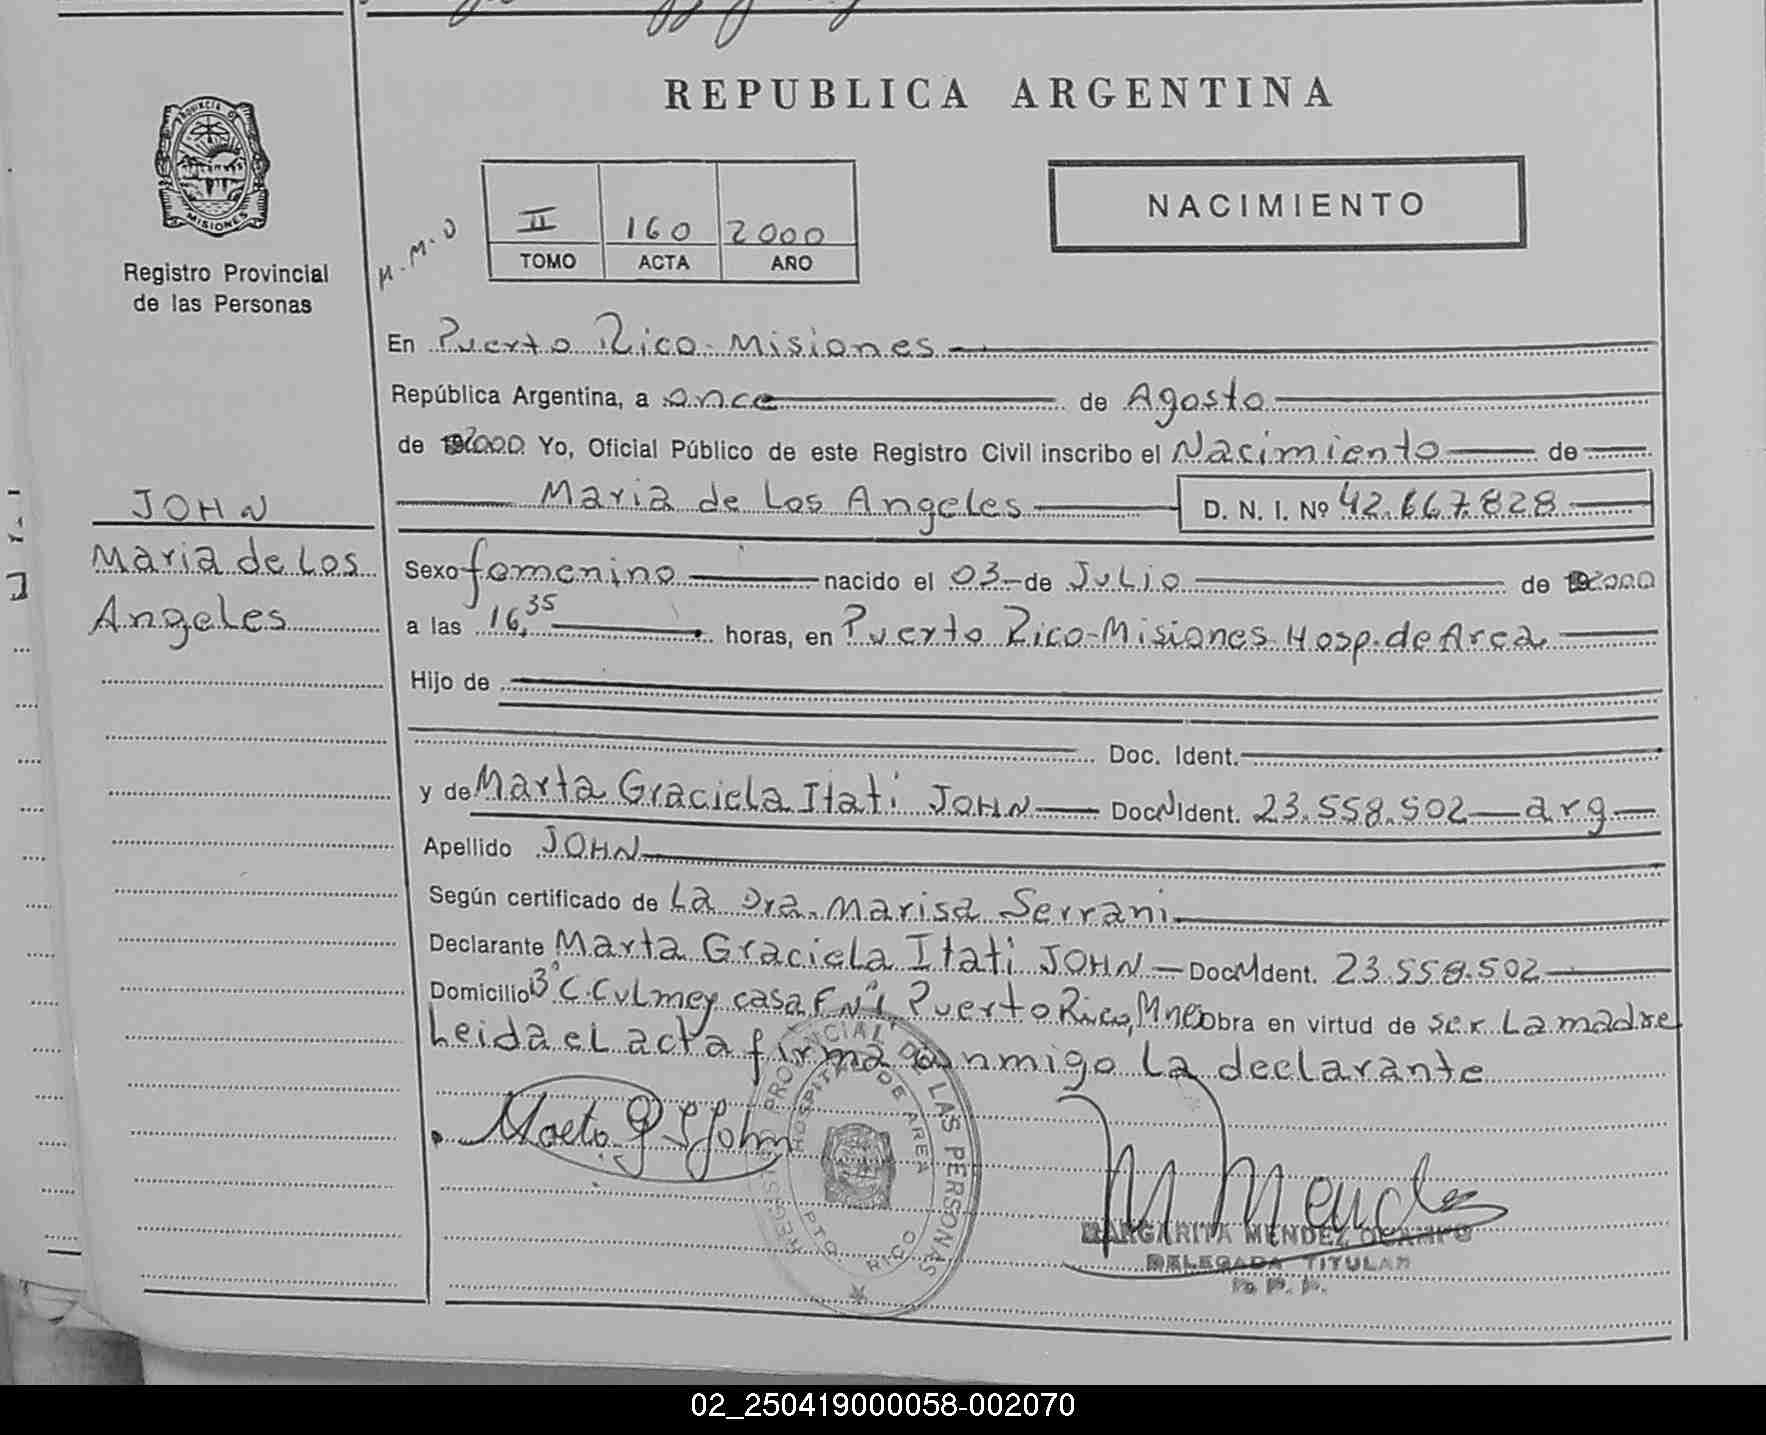 REPUBLICA ARGENTINA
PROVINCIA DE
MISIONES
Registro Provincial
de las Personas
M.M.O
II 160 2000
TOMO ACTA AÑO
NACIMIENTO
En Puerto Rico - Misiones
República Argentina, a once de Agosto
de 2000 Yo, Oficial Público de este Registro Civil inscribo el Nacimiento de
Maria de Los Angeles D. N. I. Nº 42.667.828
JOHN
Maria de Los
Angeles
Sexo femenino nacido el 03 de Julio de 2000
a las 16,35 horas, en Puerto Rico-Misiones Hosp. de Area
Hijo de
Doc. Ident.
y de Marta Graciela Itati JOHN Doc N Ident. 23.558.502 - arg
Apellido JOHN
Según certificado de La Dra. Marisa Serrani
Declarante Marta Graciela Itati JOHN - Doc N Ident. 23.558.502
Domicilio Bº C. Culmey casa F Nº1 Puerto Rico, Mnes Obra en virtud de ser La madre
Leida el acta firma conmigo La declarante
Marta G I John
REGISTRO PROVINCIAL DE LAS PERSONAS
HOSPITAL DE AREA
PTO RICO
M Mendez
MARGARITA MENDEZ OCAMPO
DELEGADA TITULAR
R. P. P.
02_250419000058-002070